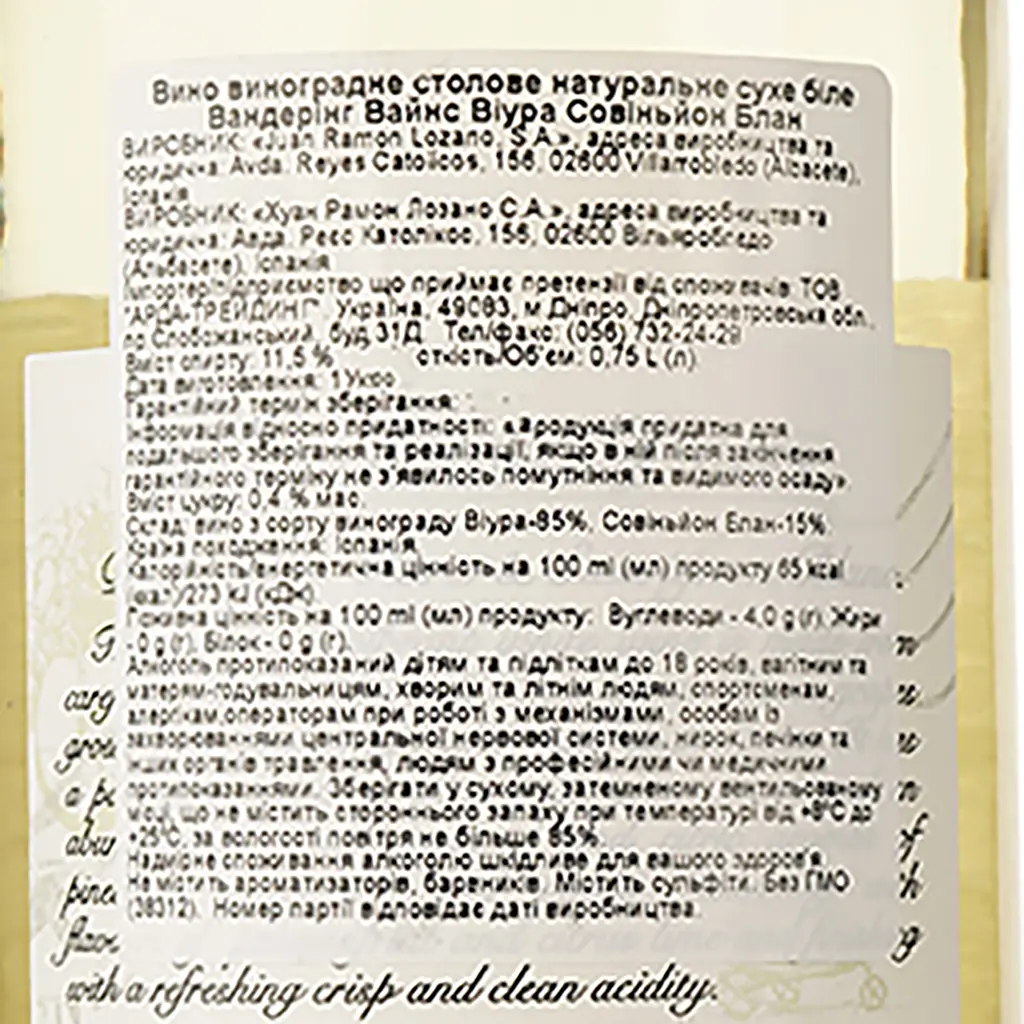 Вино виноградне столове натуральне сухе біле
Вандерінг Вайнс Віура Совіньйон Блан
ВИРОБНИК: «Juan Ramon Lozano, S.A.», адреса виробництва та
юридична: Avda. Reyes Catolicos, 156, 02600 Villarrobledo (Albacete),
Іспанія
ВИРОБНИК: «Хуан Рамон Лозано С.А.», адреса виробництва та
юридична: Авда. Реєс Католікос, 156, 02600 Вільяробледо
(Альбасете), Іспанія
Імпортер/підприємство що приймає претензії від споживачів: ТОВ
"АРДА-ТРЕЙДИНГ", Україна, 49083, м.Дніпро, Дніпропетровська обл.,
пр.Слобожанський, буд.31Д. Тел/факс: (056) 732-24-28
Вміст спирту: 11,5 % Об'єм: 0,75 L (л)
Дата виготовлення:
Гарантійний термін зберігання:
Інформація відносно придатності: «Продукція придатна для
подальшого зберігання та реалізації, якщо в ній після закінчення
гарантійного терміну не з'явилось помутніння та видимого осаду».
Вміст цукру: 0,4 % мас.
Склад: вино з сорту винограду Віура-85%, Совіньйон Блан-15%.
Країна походження: Іспанія
Калорійність/енергетична цінність на 100 ml (мл) продукту 65 kcal
(ккал)/273 kJ (кДж).
Поживна цінність на 100 ml (мл) продукту: Вуглеводи - 4,0 g (г), Жири
- 0 g (г), Білок - 0 g (г).
Алкоголь протипоказаний дітям та підліткам до 18 років, вагітним та
матерям-годувальницям, хворим та літнім людям, спортсменам,
алергікам,операторам при роботі з механізмами, особам із
захворюваннями центральної нервової системи, нирок, печінки та
інших органів травлення, людям з професійними чи медичними
протипоказаннями. Зберігати у сухому, затемненому вентильованому
місці, що не містить стороннього запаху при температурі від +8°С до
+25°С, за вологості повітря не більше 85%.
Надмірне споживання алкоголю шкідливе для вашого здоров'я.
Не містить ароматизаторів, барвників. Містить сульфіти. Без ГМО
(38312). Номер партії відповідає даті виробництва.
with a refreshing crisp and clean acidity.